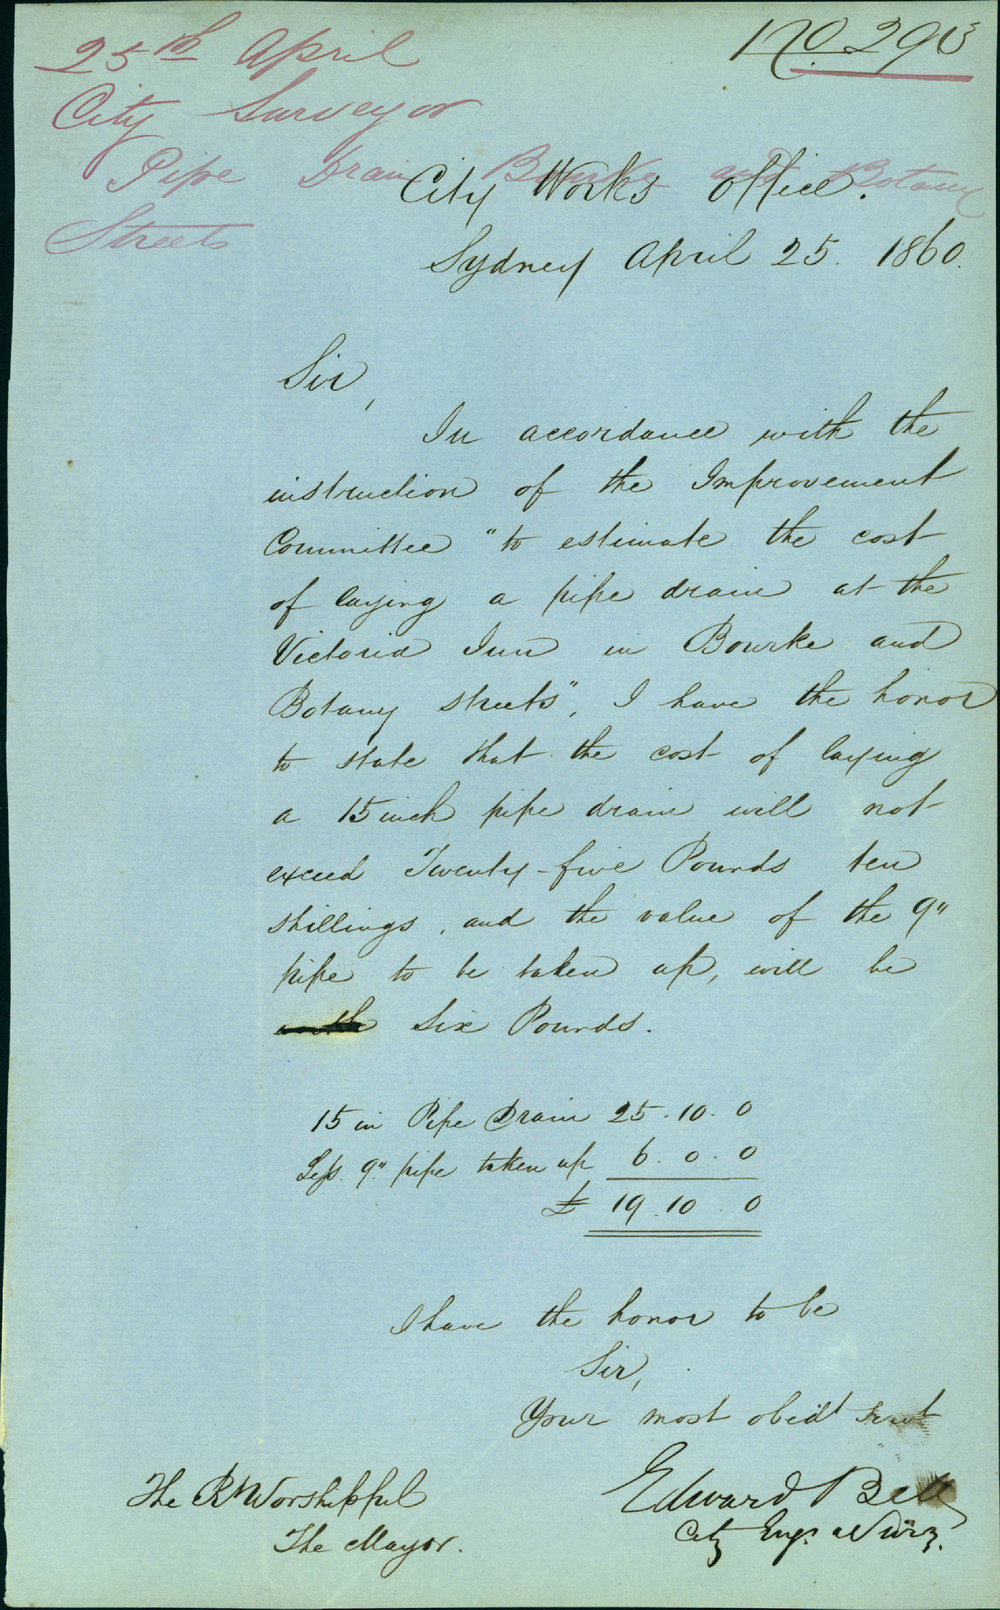 25th April
City Surveyor
Pipe Drain Bourke and Botany
Streets
No 293
City Works Office.
Sydney April 25. 1860.
Sir,
In accordance with the
instruction of the Improvement
Committee "to estimate the cost
of laying a pipe drain at the
Victoria Inn in Bourke and
Botany streets", I have the honor
to state that the cost of laying
a 15 inch pipe drain will not
exceed Twenty-five Pounds ten
shillings, and the value of the 9"
pipe to be taken up, will be
Six Pounds.
15 in Pipe Drain 25.10.0
Less 9" pipe taken up 6.0.0
£ 19.10.0
I have the honor to be
Sir,
Your most obedt Servt
Edward Bell
City Engr. & Survr.
The Rt Worshipful
The Mayor.